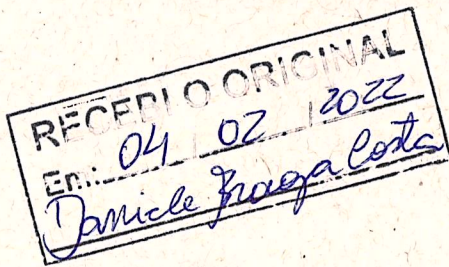 RECEBI O ORIGINAL
Em: 04 / 02 / 2022
Daniele Braga Costa